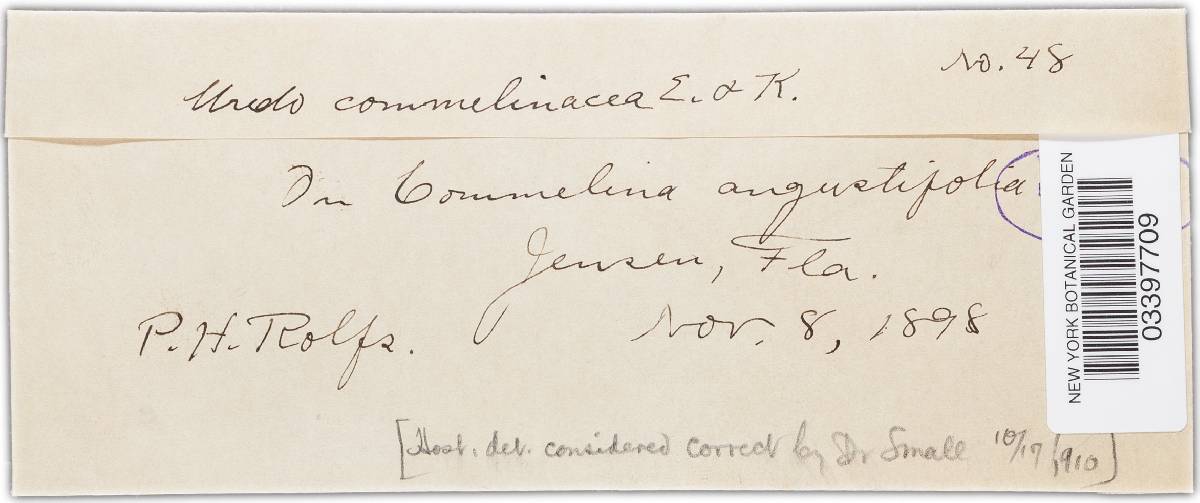 No. 48
Uredo commelinacea E. & K.
On Commelina angustifolia
Jensen, Fla.
P. H. Rolfs. Nov. 8, 1898
[Host. det. considered correct by Dr Small 10/17/1910]
NEW YORK BOTANICAL GARDEN
03397709